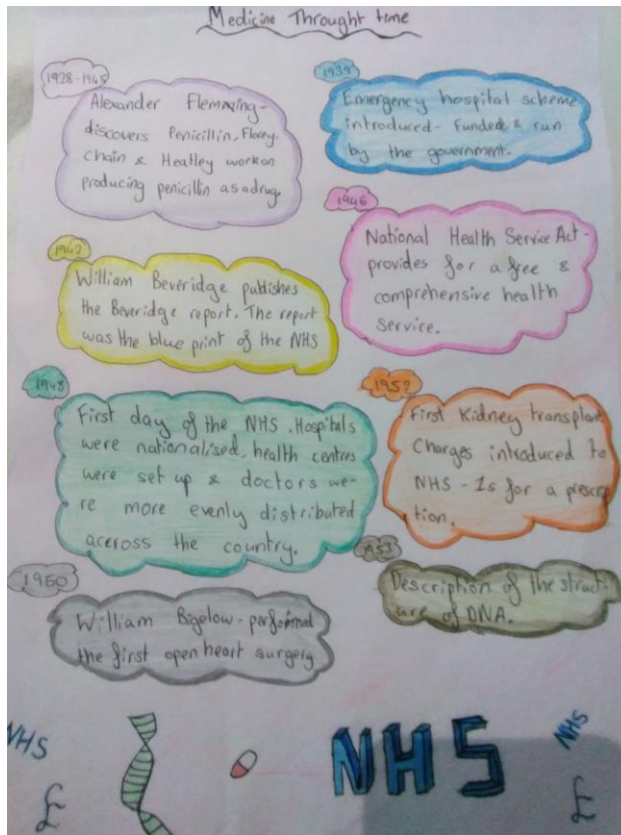 Medicine Throught time
1928-1945
Alexander Flemming-
discovers Penicillin. Florey,
chain & Heatley work on
producing penicillin as a drug.
1939
Emergency hospital scheme
introduced - Funded & run
by the government.
1942
William Beveridge publishes
the Beveridge report. The report
was the blue print of the NHS
1946
National Health Service Act -
provides for a free &
comprehensive health
Service.
1948
First day of the NHS. Hospitals
were nationalised, health centres
were set up & doctors we-
re more evenly distributed
aceross the country.
1952
First Kidney transplant
Charges introduced to
NHS - 1s for a prescrip
tion.
1950
William Bigelow - performed
the first open heart surgery
1953
Description of the struct-
ure of DNA.
NHS
£
NHS
NHS
£